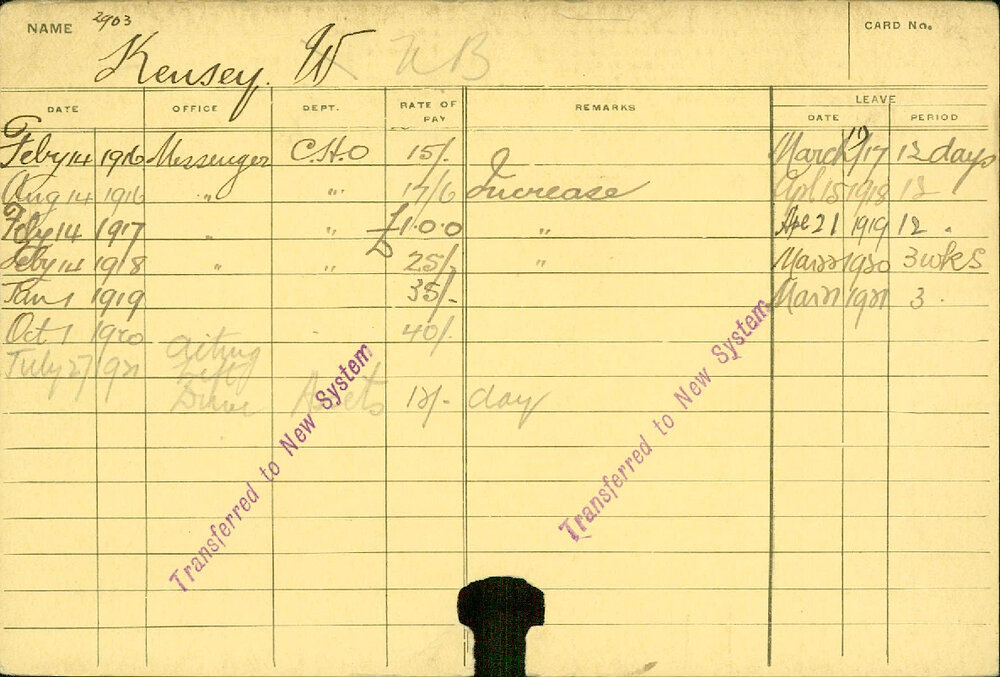 NAME 2903 CARD No.
Kensey. W WB
DATE OFFICE DEPT. RATE OF PAY REMARKS LEAVE
DATE PERIOD
Feby 14 1916 Messenger C.H.O 15/- March 19/17 12 days
Aug 14 1916 " " 17/6 Increase Apl 15 1918 12
Feby 14 1917 " " £1.0.0 " Ap 21 1919 12 "
Feby 14 1918 " " 25/- " Mar 22 1920 3 wks
Jan 1 1919 35/- Mar 21 1921 3 "
Oct 1 1920 40/-
July 27 1921 Acting
Lift
Driver 12/- day
Transferred to New System
Transferred to New System